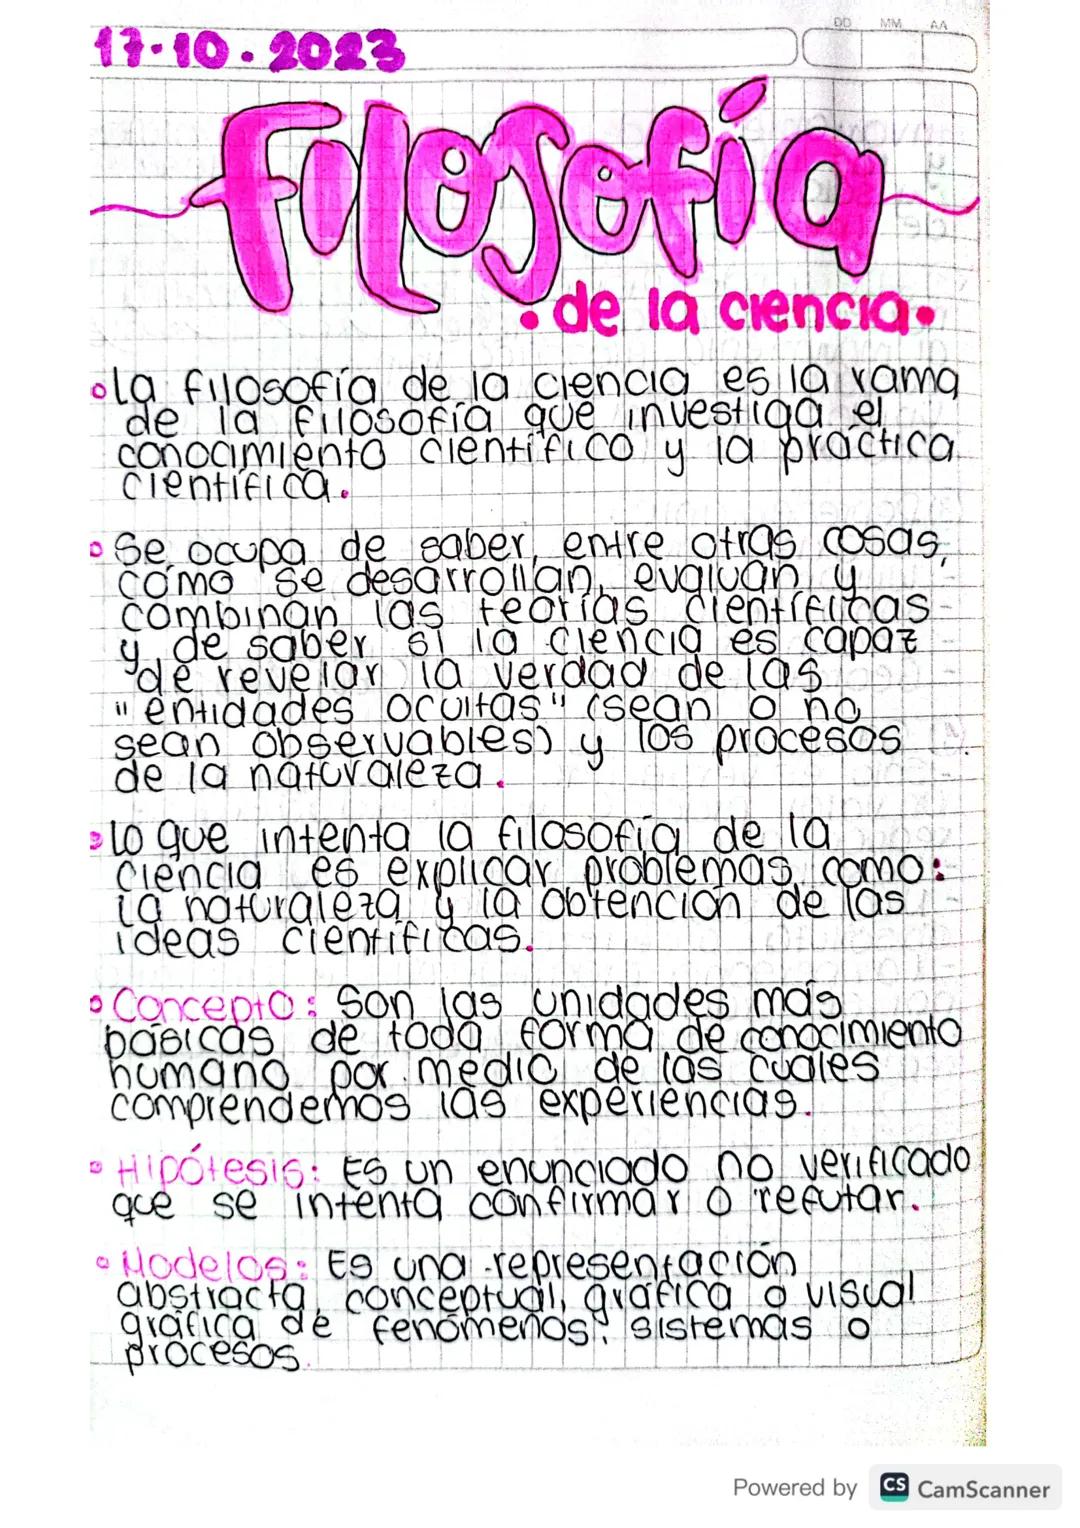 DD MM AA
17·10·2023
Filosofía
• de la ciencia •
• La filosofía de la ciencia es la rama
de la filosofía que investiga el
conocimiento científico y la práctica
científica.
• Se ocupa de saber, entre otras cosas,
cómo se desarrollan, evalúan y
combinan las teorías científicas
y de saber si la ciencia es capaz
de revelar la verdad de las
"entidades ocultas" (sean o no
sean observables) y los procesos
de la naturaleza.
• Lo que intenta la filosofía de la
ciencia es explicar problemas como:
La naturaleza y la obtención de las
ideas científicas.
• Concepto: Son las unidades más
básicas de toda forma de conocimiento
humano por medio de las cuales
comprendemos las experiencias.
• Hipótesis: Es un enunciado no verificado
que se intenta confirmar o refutar.
• Modelos: Es una representación
abstracta, conceptual, gráfica o visual
gráfica de fenómenos, sistemas o
procesos.
Powered by CS CamScanner